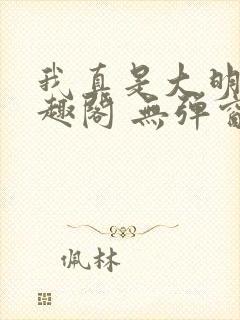 我真是大明
趣阁 無弹窗
佩林